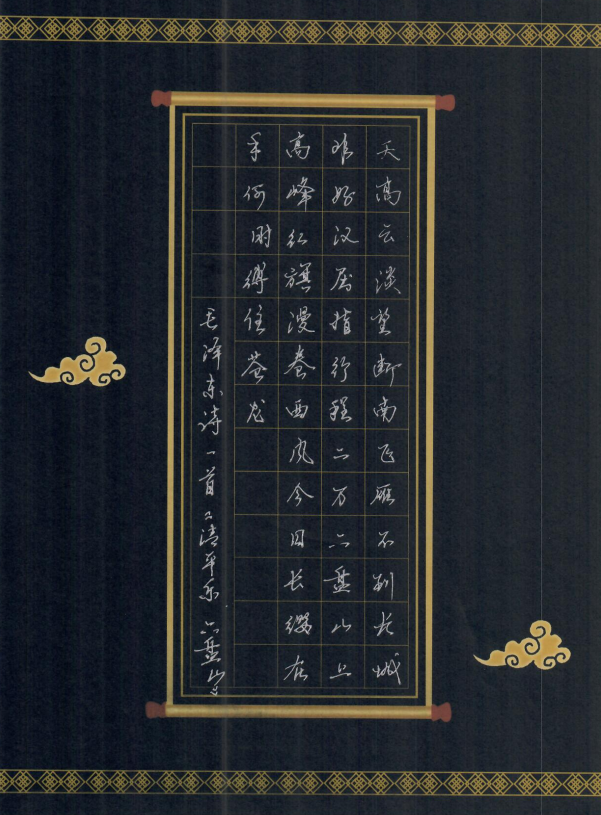 天高云淡望断南飞雁不到长城
非好汉屈指行程二万六盘山上
高峰红旗漫卷西风今日长缨在
手何时缚住苍龙
毛泽东诗一首之清平乐六盘山